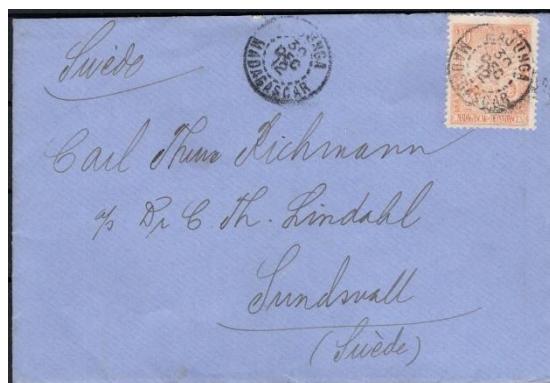 Suède
MAJUNGA
30
MADAGASCAR
MAJUNGA
30
MADAGASCAR
MADAGASCAR
Carl Richmann
Dr C. Th. Lindahl
Sundsvall
(Suède)